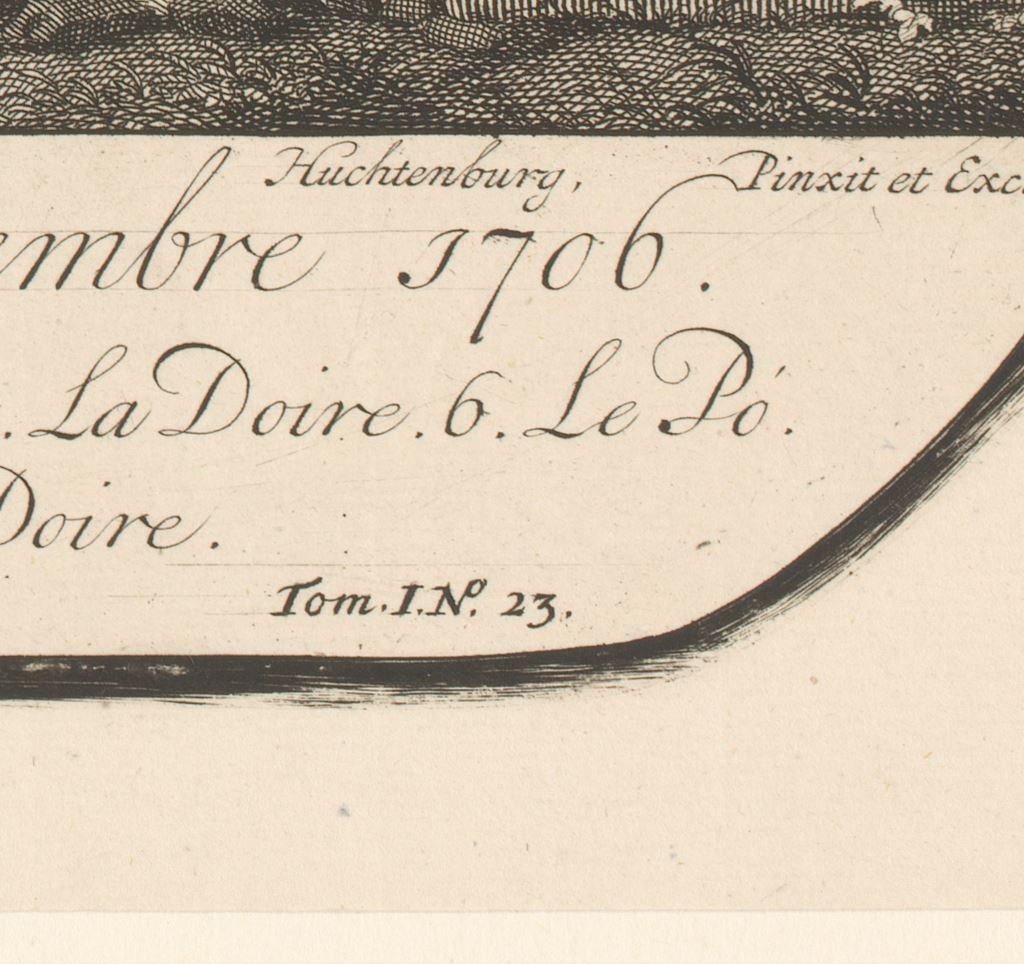 Huchtenburg, Pinxit et Exc.
embre 1706.
. La Doire. 6. Le Pó.
Doire.
Tom. I. Nº. 23.